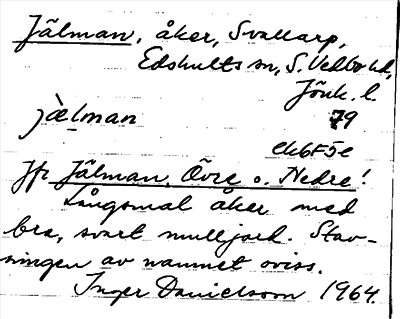 Jälman, åker, Svallarp,
Edshults sn, S. Vedbo hd,
Jönk. l.
jälman 79
ek6F5e
Jfr Jälman, Övre o. Nedre!
Långsmal åker med
bra, svart mulljord. Stav-
ningen av namnet oviss.
Inger Danielsson 1964.